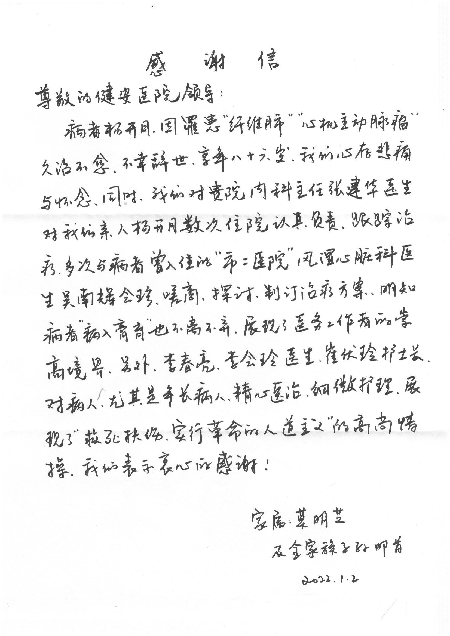 感谢信
尊敬的健安医院领导：
病者杨开月，因罹患“纤维肺”“心机主动脉瘤”
久治不愈，不幸辞世，享年八十六岁，我们心存悲痛
与怀念，同时，我们对贵院内科主任张建华医生
对我们亲人杨开月数次住院认真负责，跟踪治
疗，多次与病者曾入住的“市二医院”风湿心脏科医
生吴南 会珍、嗟商，探讨，制订治疗方案、明知
病者“病入膏肓”也不离不弃，展现了医务工作者的崇
高境界，另外，李春亮，李会玲医生，崔伏玲护士长，
对病人，尤其是年长病人，精心医治，细微护理，展
现了“救死扶伤，实行革命的人道主义”的高尚情
操，我们表示衷心的感谢！
家属：莫明芝
及全家族子孙叩首
2022.1.2